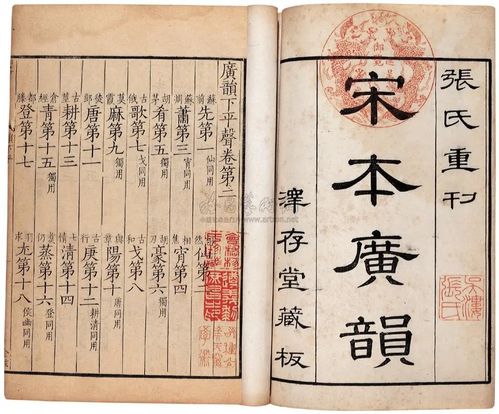 張氏重刊
宋本廣韻
澤存堂藏板
廣韻下平聲卷第二
蘇前先第一仙同用 仙第
蘇彫蕭第三宵同用 相焦宵第四
胡肴第五獨用 胡豪第六獨用
古俄歌第七戈同用 古戈第八
莫霞麻第九獨用 與章陽第十唐同用
徒郎唐第十一 古行庚第十二耕清同用
古莖耕第十三 七情清第十四
倉經青第十五獨用 仍蒸第十六登同用
都滕登第十七 羽求尤第十八侯幽同用